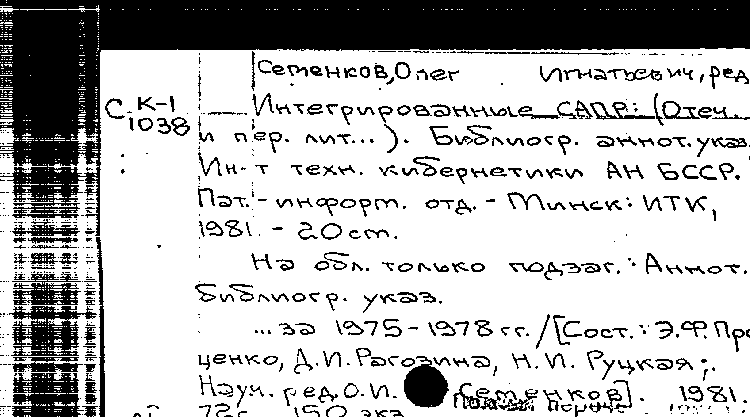 Семенков, Олег Игнатьевич, ред
С. К-1
1038
Интегрированные САПР: (Отеч.
и пер. лит...). Библиогр. аннот. указ.
Ин-т техн. кибернетики АН БССР.
Пат.-информ. отд. - Минск: ИТК,
1981. - 20 см.
На обл. только подзаг.: Аннот.
библиогр. указ.
...за 1975-1978 гг. /[Сост.: Э.Ф. Про
ценко, Д.И. Рагозина, Н.И. Руцкая;
Науч. ред. О.И. Семенков]. 1981.
72 с. 150 экз.